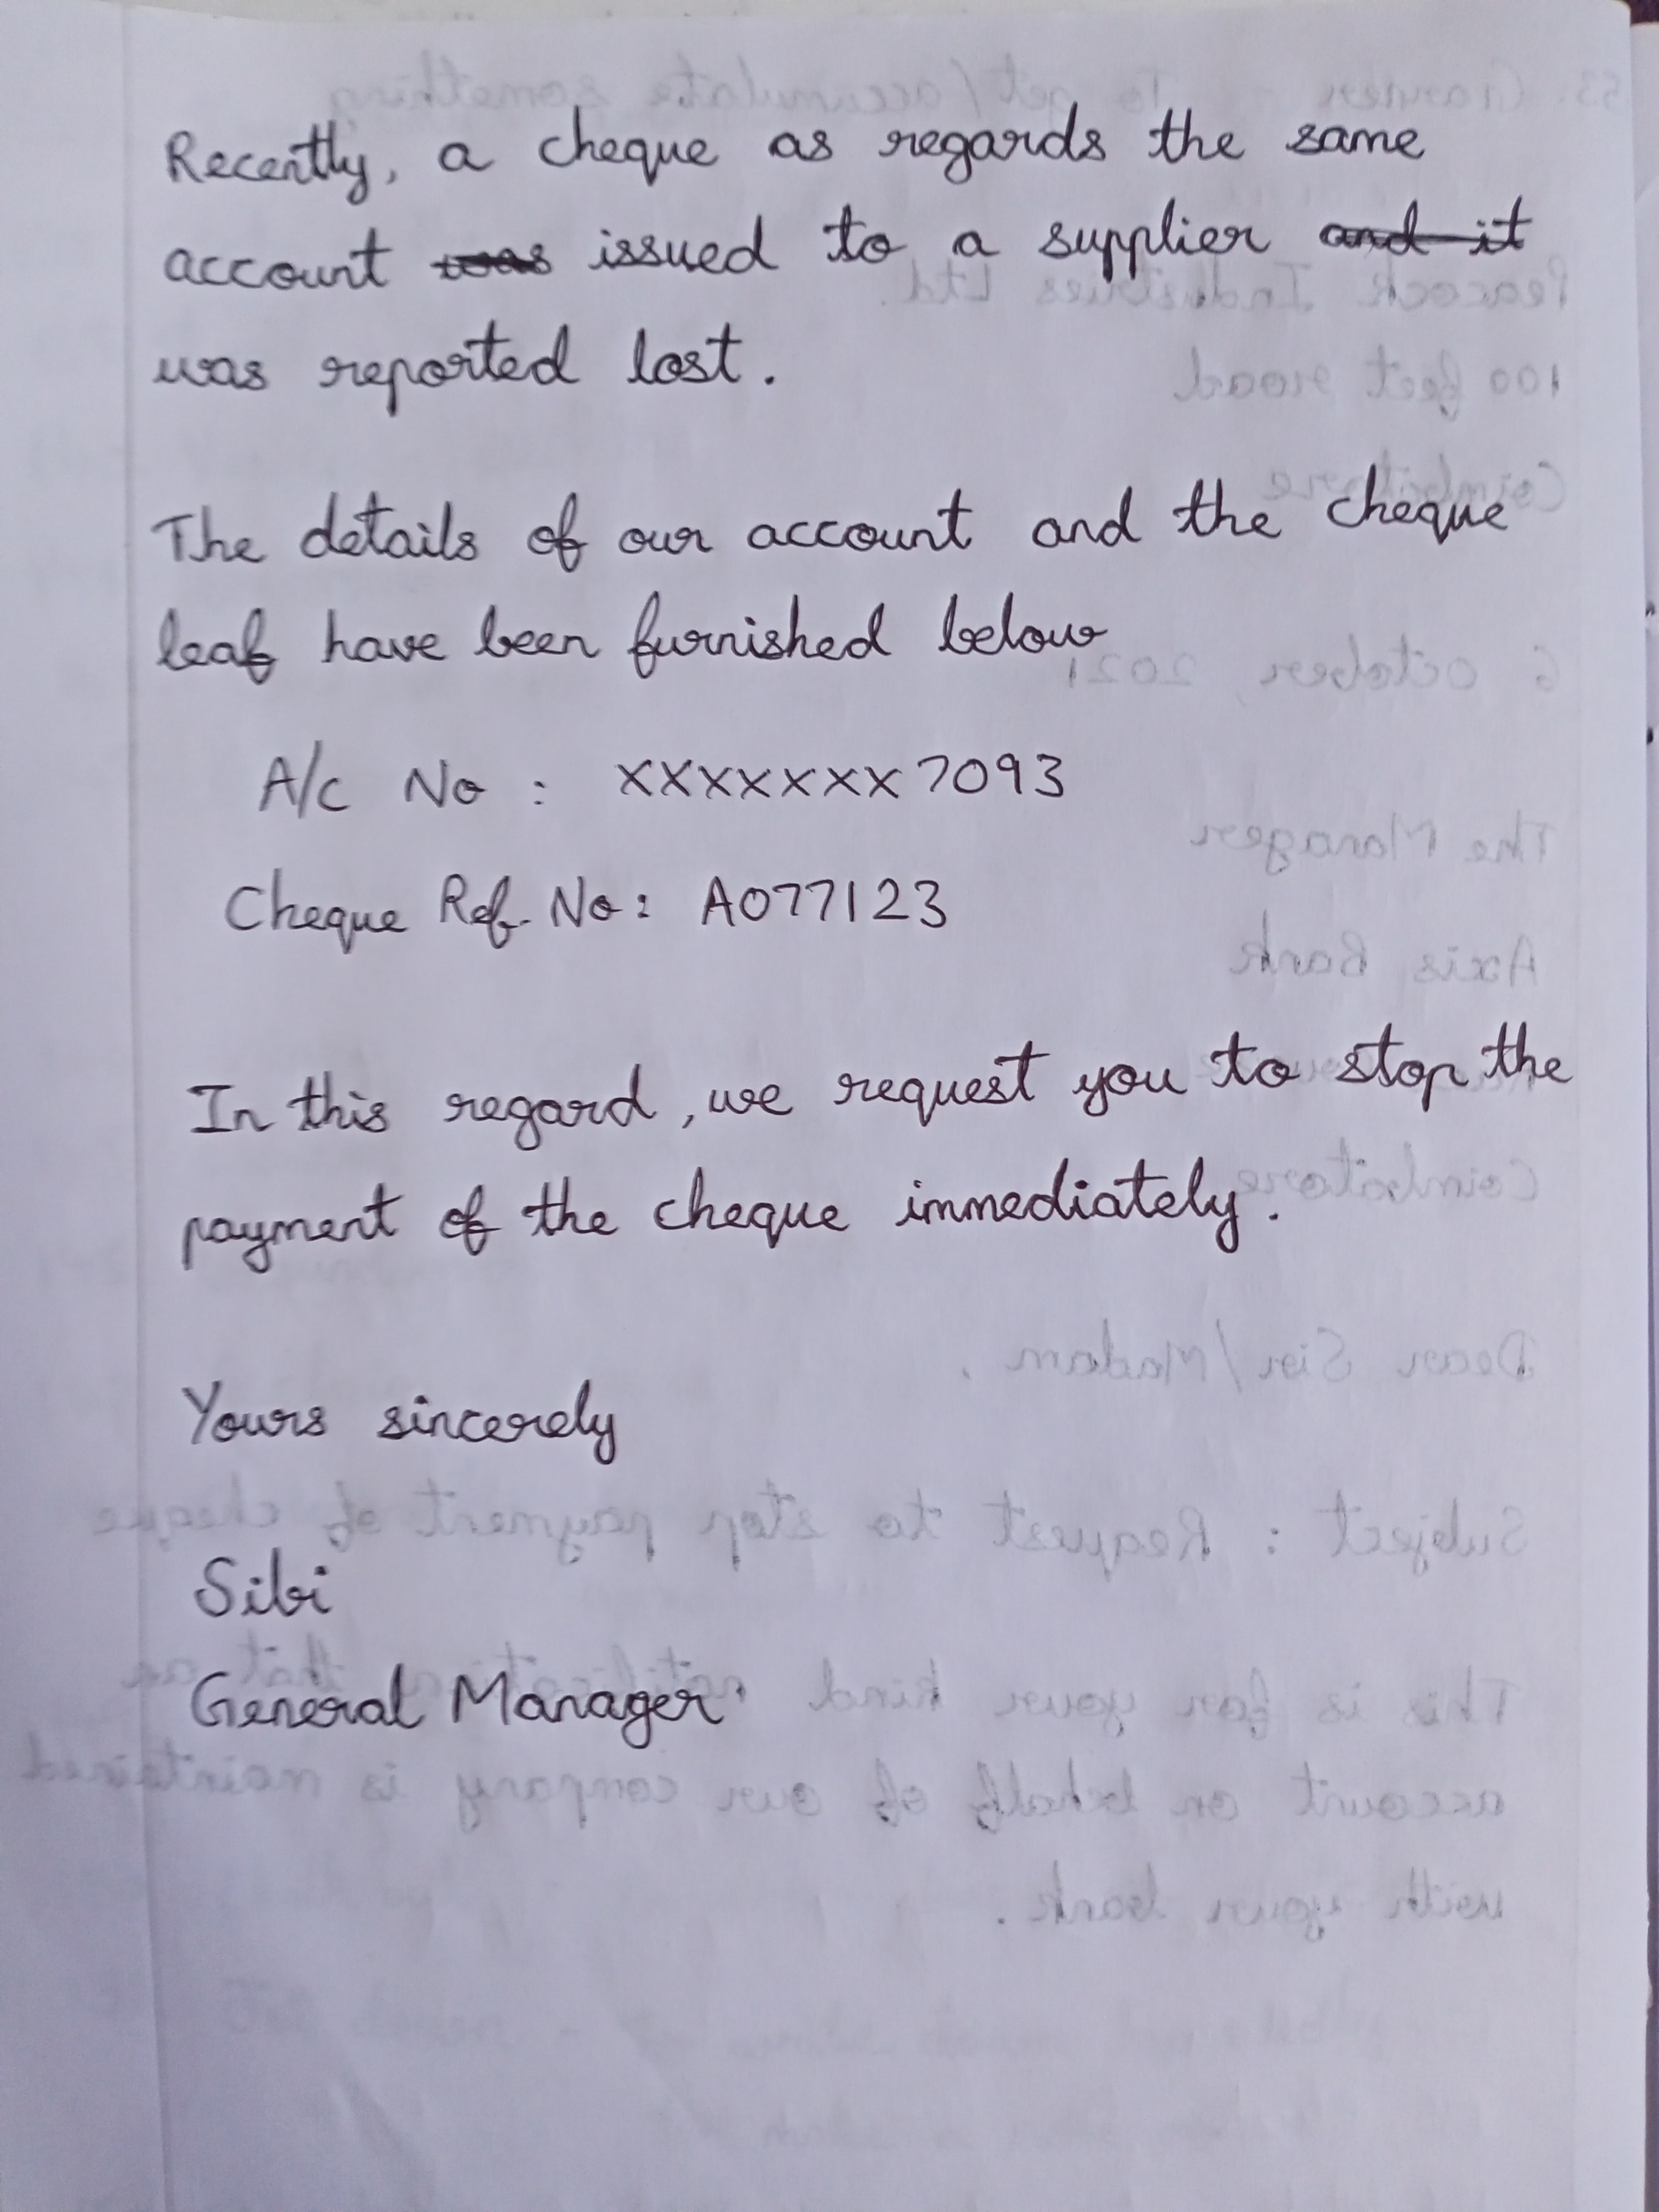 Recently, a cheque as regards the same
account was issued to a supplier and it
was reported lost.
The details of our account and the cheque
leaf have been furnished below
A/c No : XXXXXXX7093
Cheque Ref. No: A077123
In this regard, we request you to stop the
payment of the cheque immediately.
Yours sincerely
Sibi
General Manager